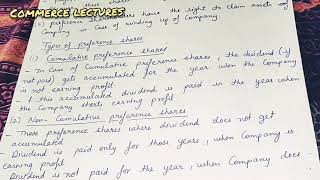 COMMERCE LECTURES
preference shares
preference shareholders have the right to claim assets of
Company in Case of winding up of Company.
Types of preference shares
(1) Cumulative preference shares
- In Case of Cumulative preference shares, the dividend (if
not paid) gets accumulated for the year when the Company
is not earning profit
- This accumulated dividend is paid in the year when
the Company starts earning profit
(2) Non- Cumulative preference shares
- Those preference shares where dividend does not get
accumulated
- Dividend is paid only for those years, when Company is
earning profit
Dividend is not paid for the year, when Company does